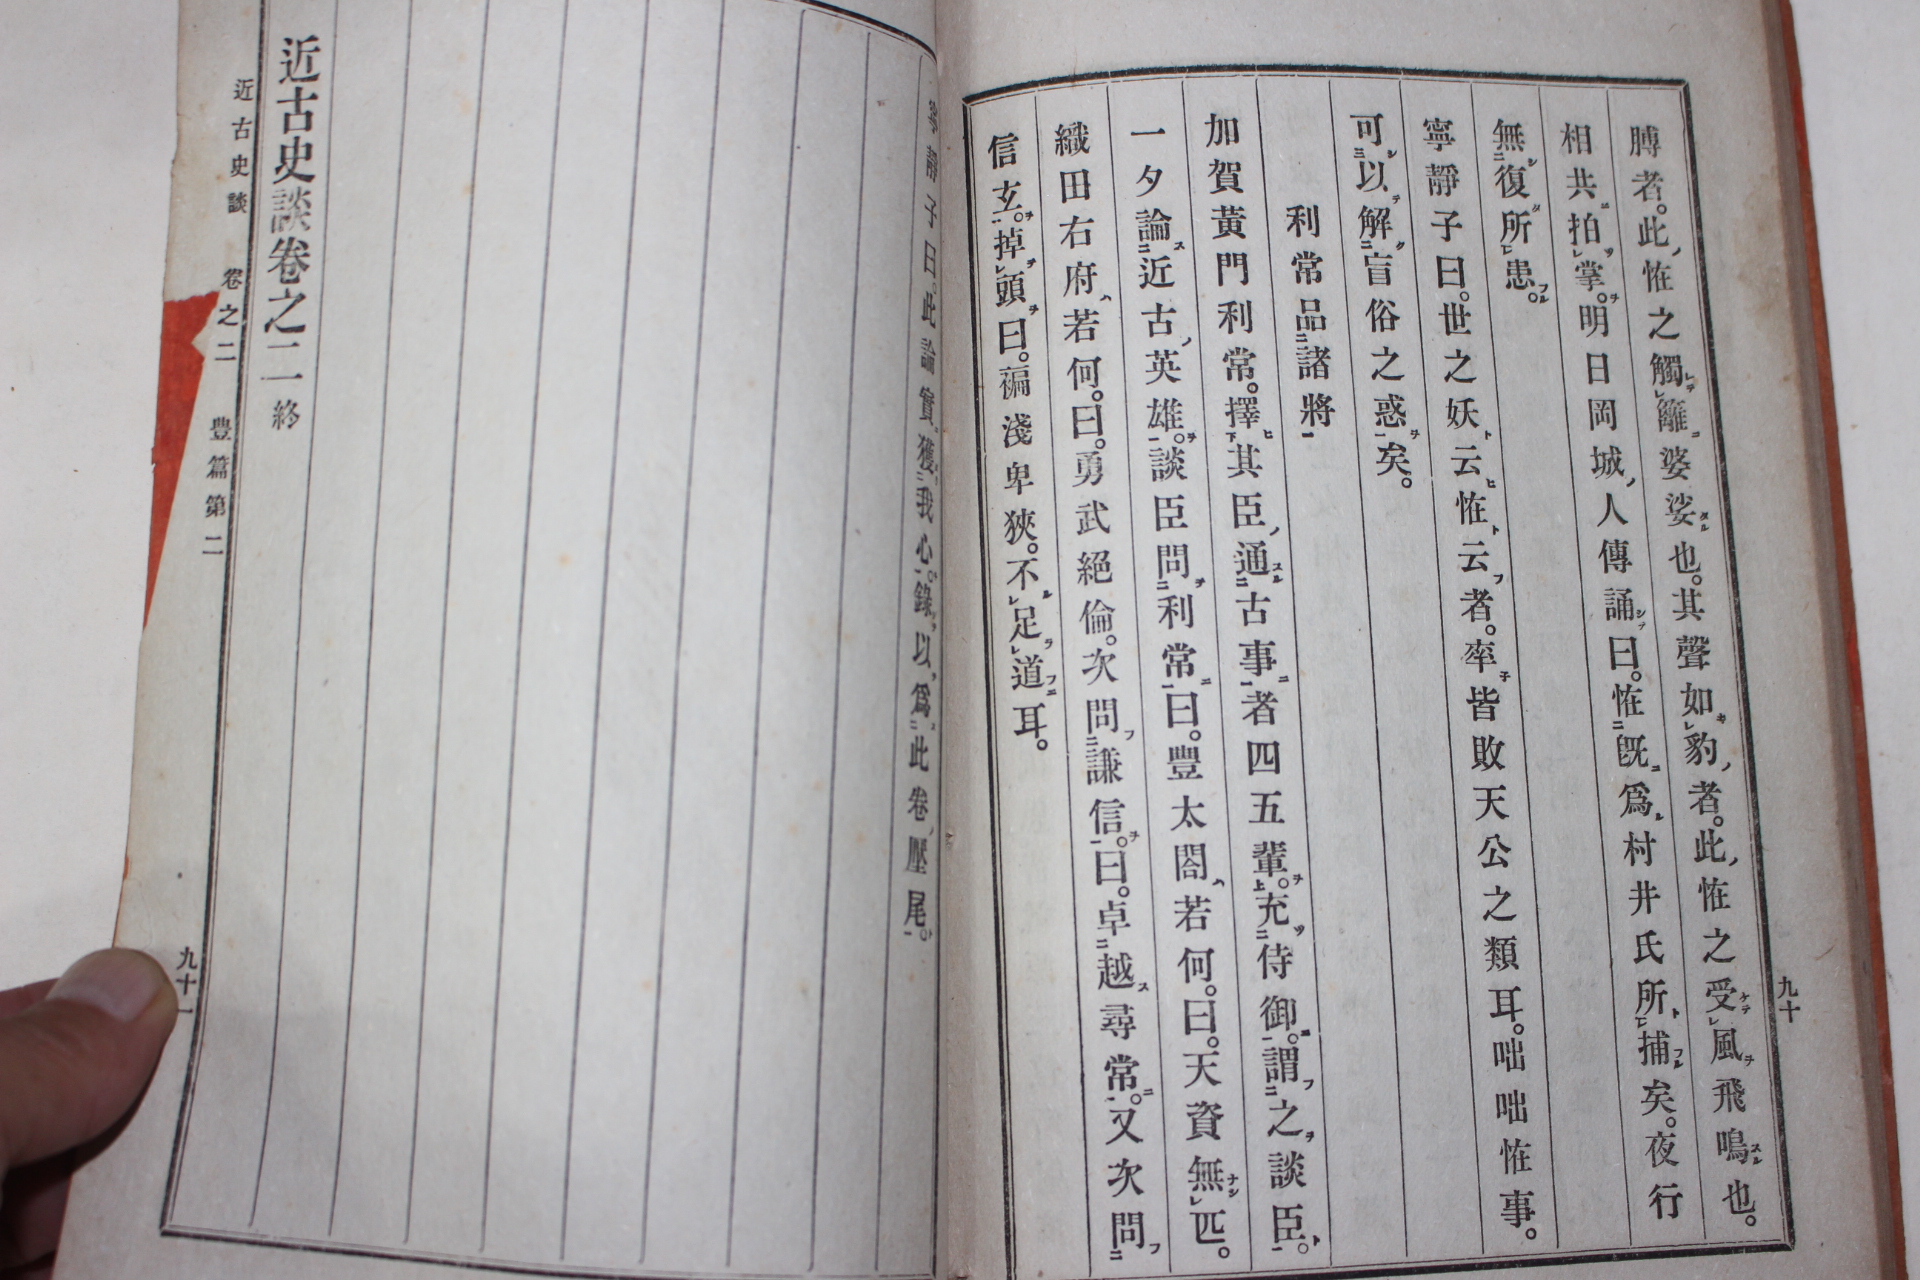 九十
膊者。此恠之觸籬婆娑也。其聲如豹者。此恠之受風飛鳴也。
相共拍掌。明日岡城人傳誦曰。恠既爲村井氏所捕矣。夜行
無復所患。
寧靜子曰。世之妖云恠云者。率皆敗天公之類耳。咄咄恠事。
可以解盲俗之惑矣。
利常品諸將
加賀黃門利常。擇其臣通古事者四五輩。充侍御。謂之談臣。
一夕論近古英雄。談臣問利常曰。豐太閤若何。曰。天資無匹。
織田右府若何。曰。勇武絕倫。次問謙信。曰。卓越尋常。又次問
信玄。掉頭曰。褊淺卑狹。不足道耳。
寧靜子曰。此論實獲我心。錄以爲此卷壓尾。
近古史談卷之二終
近古史談 卷之二 豊篇第二 九十一